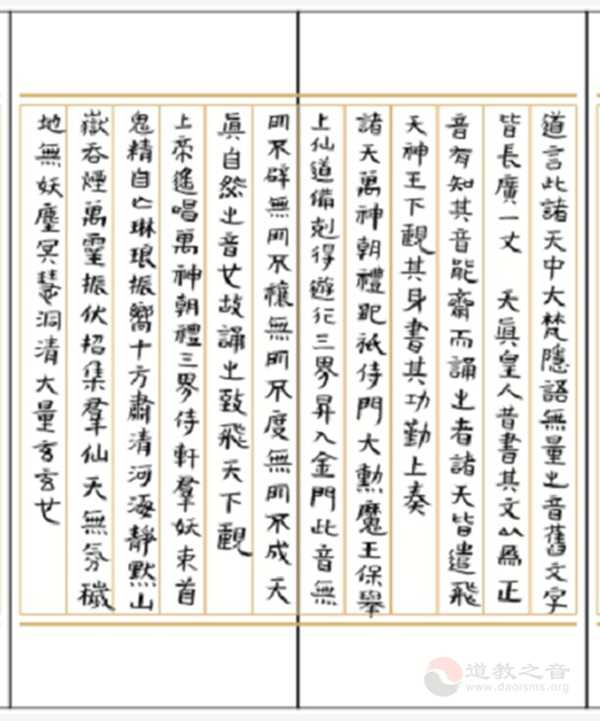 道言此諸天中大梵隱語無量之音舊文字
皆長廣一丈　天眞皇人昔書其文以爲正
音有知其音能齋而誦之者諸天皆遣飛
天神王下觀其身書其功勤上奏
諸天萬神朝禮地祇侍門大勳魔王保舉
上仙道備剋得遊行三界昇入金門此音無
所不辟無所不禳無所不度無所不成天
眞自然之音也故誦之致飛天下觀
上帝遙唱萬神朝禮三界侍軒羣妖束首
鬼精自亡琳琅振響十方肅清河海靜默山
嶽吞煙萬靈振伏招集羣仙天無氛穢
地無妖塵冥慧洞清大量玄玄也
道教之音
www.daoisms.org